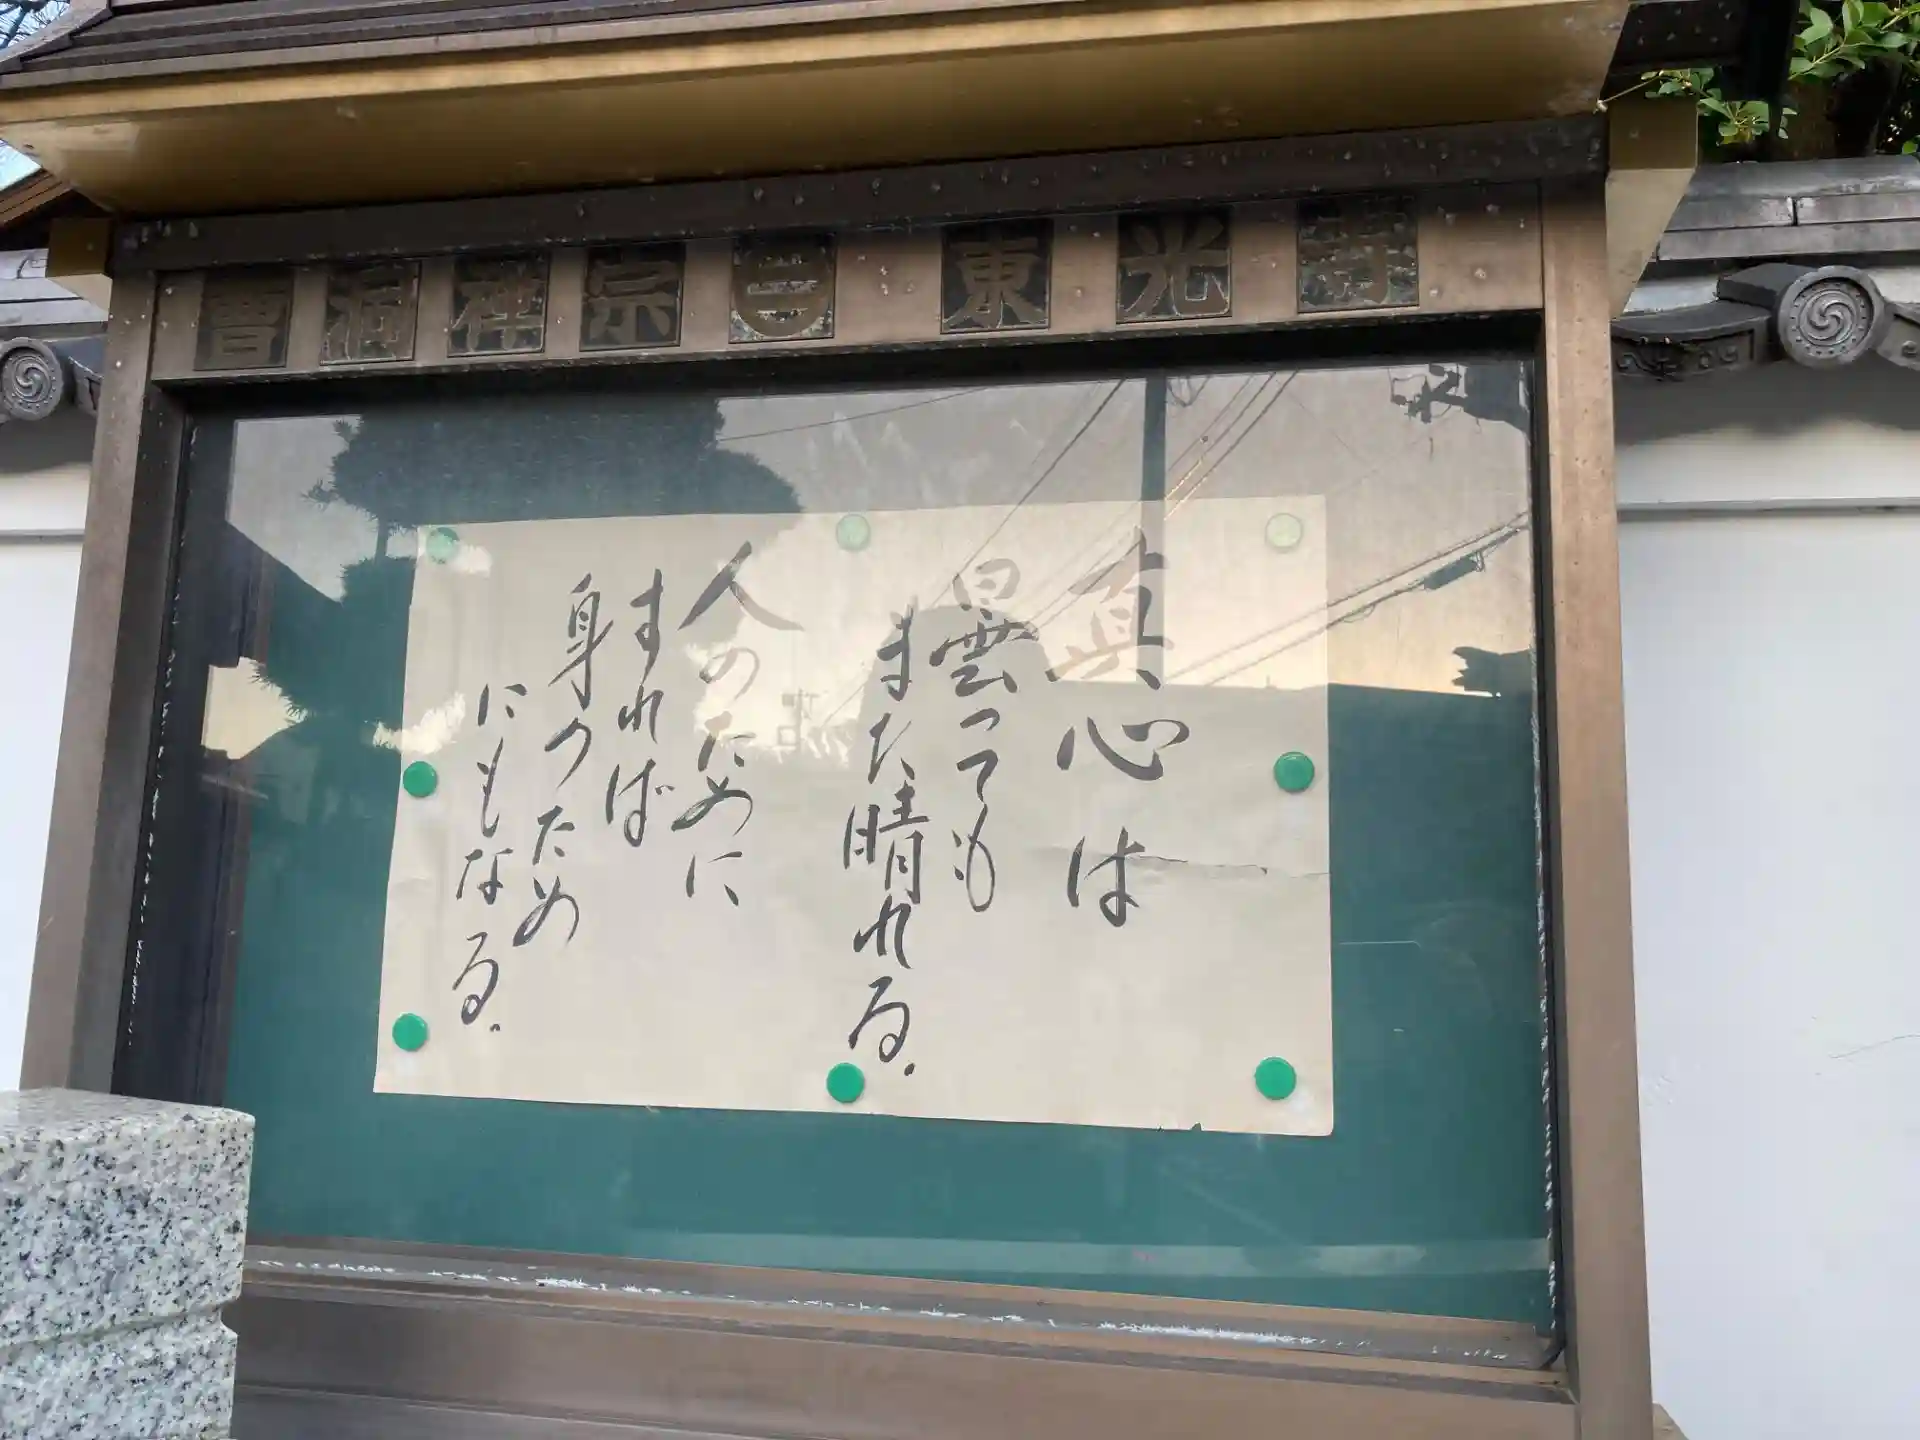 曹洞禅宗 東光寺
真心は
曇っても
また晴れる.
人のために
すれば
身のため
にもなる.